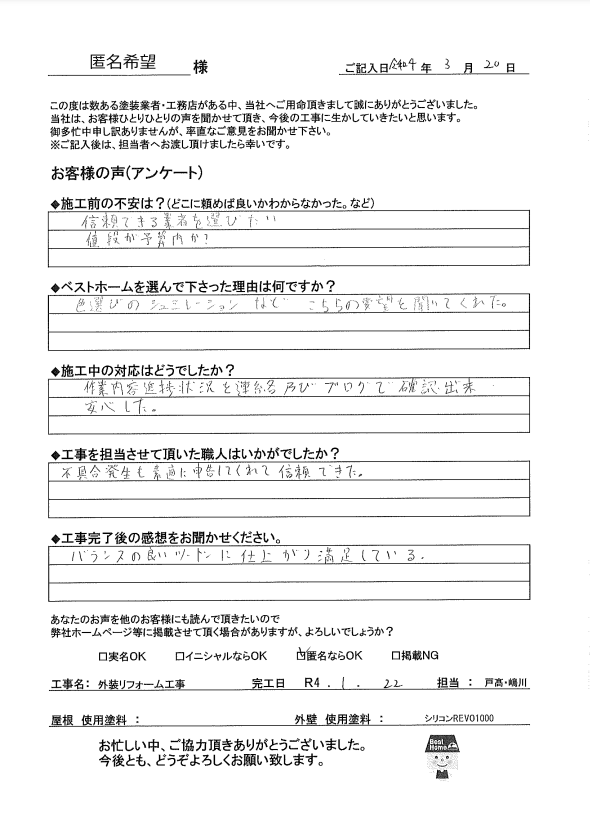 匿名希望 様
ご記入日 令和4 年 3 月 20 日
この度は数ある塗装業者・工務店がある中、当社へご用命頂きまして誠にありがとうございました。
当社は、お客様ひとりひとりの声を聞かせて頂き、今後の工事に生かしていきたいと思います。
御多忙中申し訳ありませんが、率直なご意見をお聞かせ下さい。
※ご記入後は、担当者へお渡し頂けましたら幸いです。
お客様の声(アンケート)
◆施工前の不安は？(どこに頼めば良いかわからなかった。など)
信頼できる業者を選びたい
値段が予算内か？
◆ベストホームを選んで下さった理由は何ですか？
色選びのシュミレーションなどこちらの要望を聞いてくれた。
◆施工中の対応はどうでしたか？
作業内容進捗状況を連絡及びブログで確認出来
安心した。
◆工事を担当させて頂いた職人はいかがでしたか？
不具合発生も素直に申告してくれて信頼できた。
◆工事完了後の感想をお聞かせください。
バランスの良いツートンに仕上がり満足している。
あなたのお声を他のお客様にも読んで頂きたいので
弊社ホームページ等に掲載させて頂く場合がありますが、よろしいでしょうか？
□実名OK □イニシャルならOK ☑匿名ならOK □掲載NG
工事名： 外装リフォーム工事 完工日 R4 . 1 . 22 担当 ： 戸髙・嶋川
屋根 使用塗料 ： 外壁 使用塗料 ： シリコンREVO1000
お忙しい中、ご協力頂きありがとうございました。
今後とも、どうぞよろしくお願い致します。
Best
Home